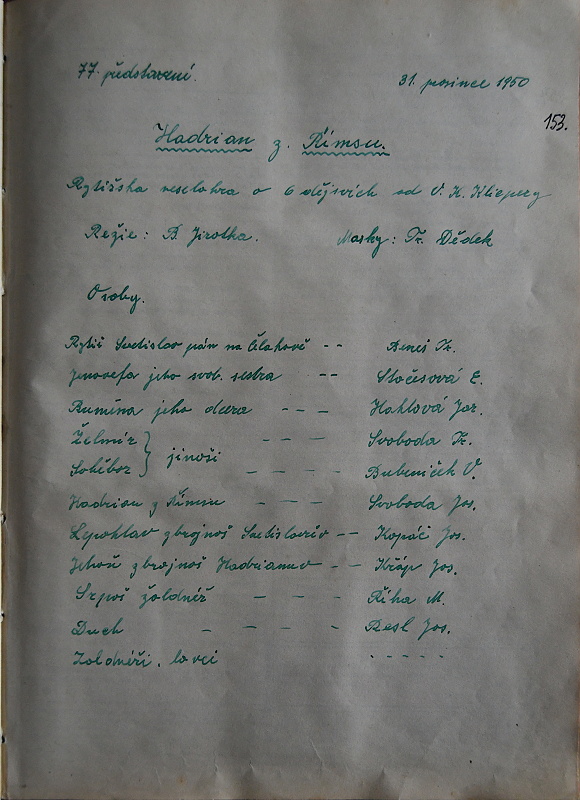 77. představení.
31. prosince 1950
153.
Hadrian z Římsu.
Rytířská veselohra o 6 dějstvích od V. K. Klicpery
Režie: B. Jirotka. Masky: Fr. Dědek
Osoby.
Rytíř Svatislav pán na -- Beneš Fr.
Jenovefa jeho svob. sestra -- Stočesová E.
Rumína jeho dcera - - - Haklová Jar.
Želmír - - - Svoboda Fr.
Soběbor } jinoši - - - - Bubeníček V.
Hadrian z Římsu - - - Svoboda Jos.
zbrojnoš -- Kopáč Jos.
zbrojnoš Hadrianuv -- Kráp Jos.
Srpoš žoldnéř - - - Říha M.
Duch - - - - Resl Jos.
Žoldnéři, lovci - - - - -